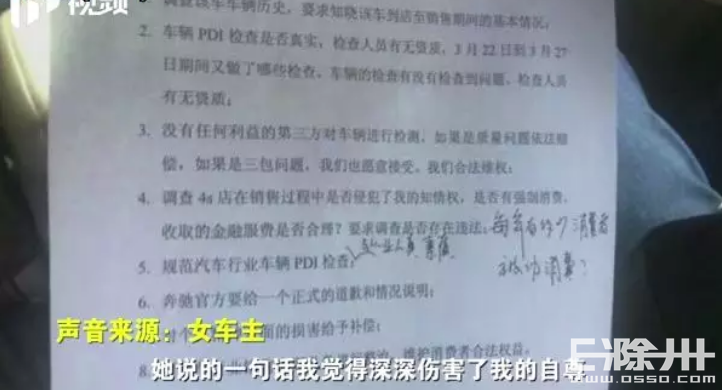 视频
调查该车车辆历史，要求知晓该车到店至销售期间的基本情况；
2. 车辆 PDI 检查是否真实，检查人员有无资质，3 月 22 日到 3 月 27
日期间又做了哪些检查，车辆的检查有没有检查到问题，检查人员
有无资质；
3. 没有任何利益的第三方对车辆进行检测，如果是质量问题依法赔
偿，如果是三包问题，我们也愿意接受，我们合法维权；
4. 调查 4s 店在销售过程中是否侵犯了我的知情权，是否有强制消费，
收取的金融服费是否合理？要求调查是否存在违法；
每年有多少消费者
被动消费？
5. 规范汽车行业车辆 PDI 检查；
6. 奔驰官方要给一个正式的道歉和情况说明；
面的损害给予补偿；
8.
维护消费者合法权益。
声音来源：女车主
她说的一句话我觉得深深伤害了我的自尊
E滁州
www.0550.com